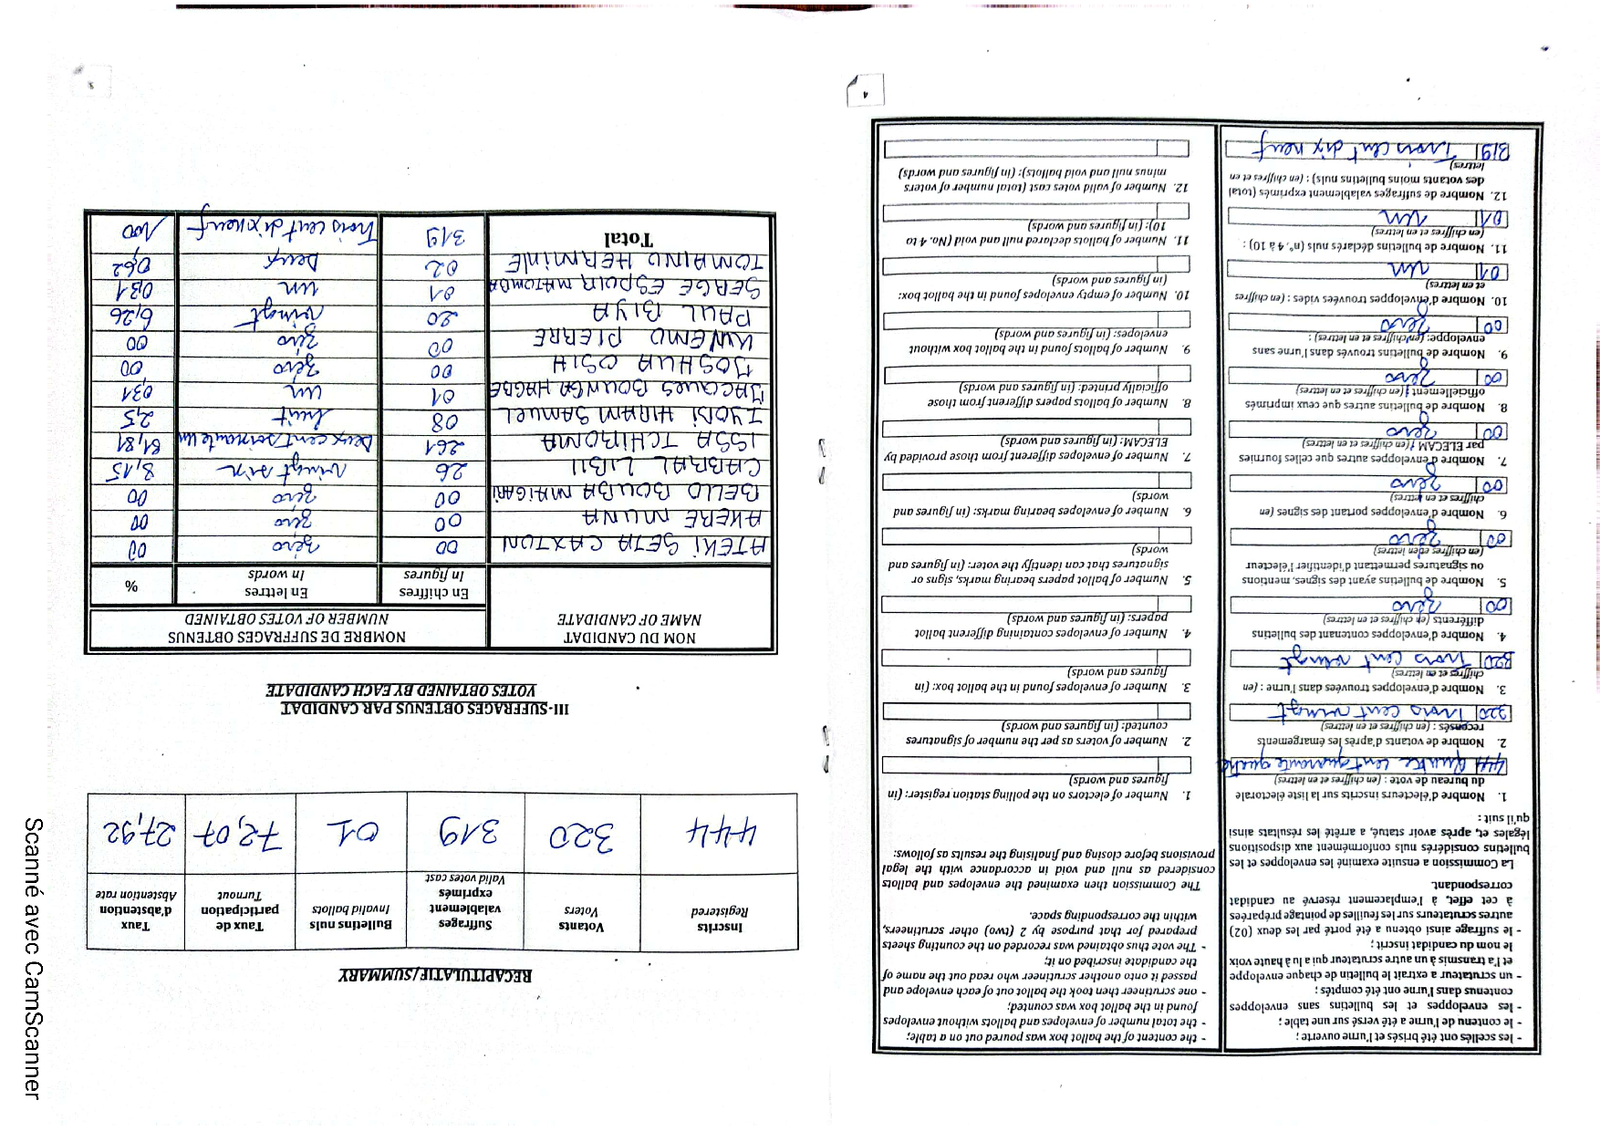 4
- les scellés ont été brisés et l'urne ouverte ;
- le contenu de l'urne a été versé sur une table ;
- les enveloppes et les bulletins sans enveloppes
contenus dans l'urne ont été comptés ;
- un scrutateur a extrait le bulletin de chaque enveloppe
et l'a transmis à un autre scrutateur qui a lu à haute voix
le nom du candidat inscrit ;
- le suffrage ainsi obtenu a été porté par les deux (02)
autres scrutateurs sur les feuilles de pointage préparées
à cet effet, à l'emplacement réservé au candidat
correspondant.
La Commission a ensuite examiné les enveloppes et les
bulletins considérés nuls conformément aux dispositions
légales et, après avoir statué, a arrêté les résultats ainsi
qu'il suit :
1. Nombre d'électeurs inscrits sur la liste électorale
du bureau de vote : (en chiffres et en lettres)
444 Quatre cent quarante quatre
2. Nombre de votants d'après les émargements
recensés : (en chiffres et en lettres)
320 Trois cent vingt
3. Nombre d'enveloppes trouvées dans l'urne : (en
chiffres et en lettres)
320 Trois cent vingt
4. Nombre d'enveloppes contenant des bulletins
différents (en chiffres et en lettres)
00 zéro
5. Nombre de bulletins ayant des signes, mentions
ou signatures permettant d'identifier l'électeur
(en chiffres et en lettres)
00 zéro
6. Nombre d'enveloppes portant des signes (en
chiffres et en lettres)
00 zéro
7. Nombre d'enveloppes autres que celles fournies
par ELECAM : (en chiffres et en lettres)
00 zéro
8. Nombre de bulletins autres que ceux imprimés
officiellement : (en chiffres et en lettres)
00 zéro
9. Nombre de bulletins trouvés dans l'urne sans
enveloppe: (en chiffres et en lettres) :
00 zéro
10. Nombre d'enveloppes trouvées vides : (en chiffres
et en lettres)
01 un
11. Nombre de bulletins déclarés nuls (n°. 4 à 10) :
(en chiffres et en lettres)
01 un
12. Nombre de suffrages valablement exprimés (total
des votants moins bulletins nuls) : (en chiffres et en
lettres)
319 Trois cent dix neuf
- the content of the ballot box was poured out on a table;
- the total number of envelopes and ballots without envelopes
found in the ballot box was counted;
- one scrutineer then took the ballot out of each envelope and
passed it onto another scrutineer who read out the name of
the candidate inscribed on it;
- The vote thus obtained was recorded on the counting sheets
prepared for that purpose by 2 (two) other scrutineers,
within the corresponding space.
The Commission then examined the envelopes and ballots
considered as null and void in accordance with the legal
provisions before closing and finalising the results as follows:
1. Number of electors on the polling station register: (in
figures and words)
2. Number of voters as per the number of signatures
counted: (in figures and words)
3. Number of envelopes found in the ballot box: (in
figures and words)
4. Number of envelopes containing different ballot
papers: (in figures and words)
5. Number of ballot papers bearing marks, signs or
signatures that can identify the voter: (in figures and
words)
6. Number of envelopes bearing marks: (in figures and
words)
7. Number of envelopes different from those provided by
ELECAM: (in figures and words)
8. Number of ballots papers different from those
officially printed: (in figures and words)
9. Number of ballots found in the ballot box without
envelopes: (in figures and words)
10. Number of empty envelopes found in the ballot box:
(in figures and words)
11. Number of ballots declared null and void (No. 4 to
10): (in figures and words)
12. Number of valid votes cast (total number of voters
minus null and void ballots): (in figures and words)
RECAPITULATIF/SUMMARY
Inscrits Registered
Votants Voters
Suffrages valablement exprimés Valid votes cast
Bulletins nuls Invalid ballots
Taux de participation Turnout
Taux d'abstention Abstention rate
444 320 319 01 72,07 27,92
III-SUFFRAGES OBTENUS PAR CANDIDAT
VOTES OBTAINED BY EACH CANDIDATE
NOM DU CANDIDAT
NAME OF CANDIDATE
NOMBRE DE SUFFRAGES OBTENUS
NUMBER OF VOTES OBTAINED
En chiffres En lettres %
In figures In words
ATEKI SETA CAXTON 00 zéro 00
AKERE MUNA 00 zéro 00
BELLO BOUBA MAIGARI 00 zéro 00
CABRAL LIBII 26 vingt six 8,15
ISSA TCHIROMA 261 Deux cent soixante un 81,81
IYODI HIRAM SAMUEL 08 huit 2,5
JACQUES BOUNGA HAGBE 01 un 0,31
JOSHUA OSIH 00 zéro 00
KWEMO PIERRE 00 zéro 00
PAUL BIYA 20 vingt 6,26
SERGE ESPOIR MATOMBA 01 un 0,31
TOMAINO HERMINIE 02 Deux 0,62
Total 319 Trois cent dix neuf 100
Scanné avec CamScanner